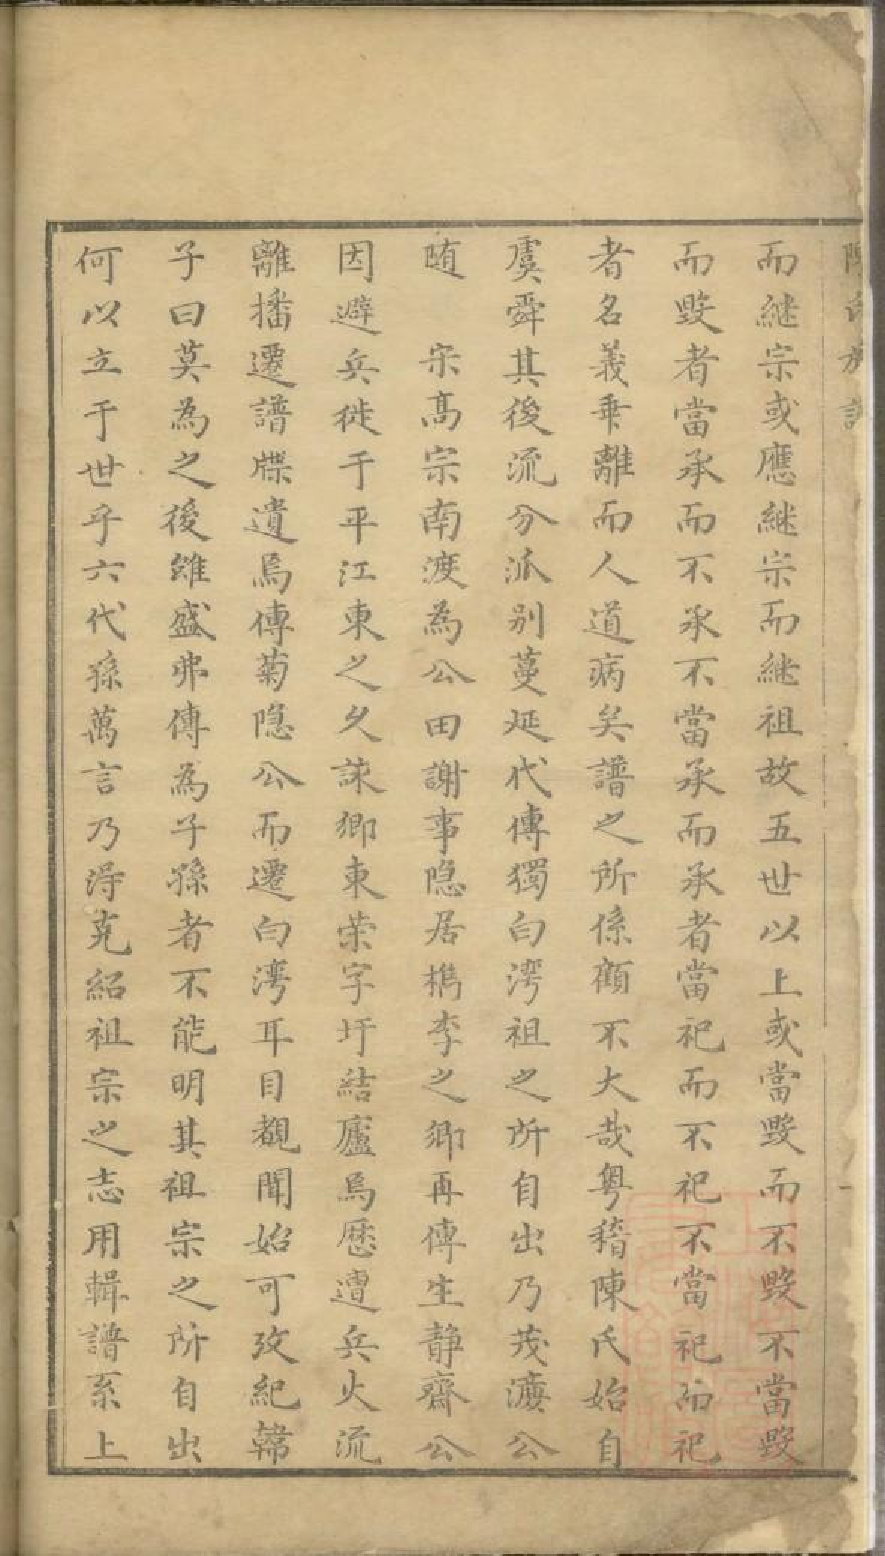 陳氏族譜
而継宗或應継宗而継祖故五世以上或當毀而不毀不當毀
而毀者當承而不承不當承而承者當祀而不祀不當祀而祀
者名義乖離而人道病矣譜之所係顧不大哉粤稽陳氏始自
虞舜其後流分派别蔓延代傳獨白湾祖之所自出乃茂濂公
随 宋髙宗南渡為公田謝事隠居檇李之郷再傳生静齋公
因避兵徙于平江東之夂誺郷東荣字圩結廬焉歴遭兵火流
離播遷譜牒遺焉傳菊隠公而遷白湾耳目覩聞始可攷紀韓
子曰莫為之後雖盛弗傳為子孫者不能明其祖宗之所自出
何以立于世乎六代孫萬言乃淂克紹祖宗之志用輯譜系上